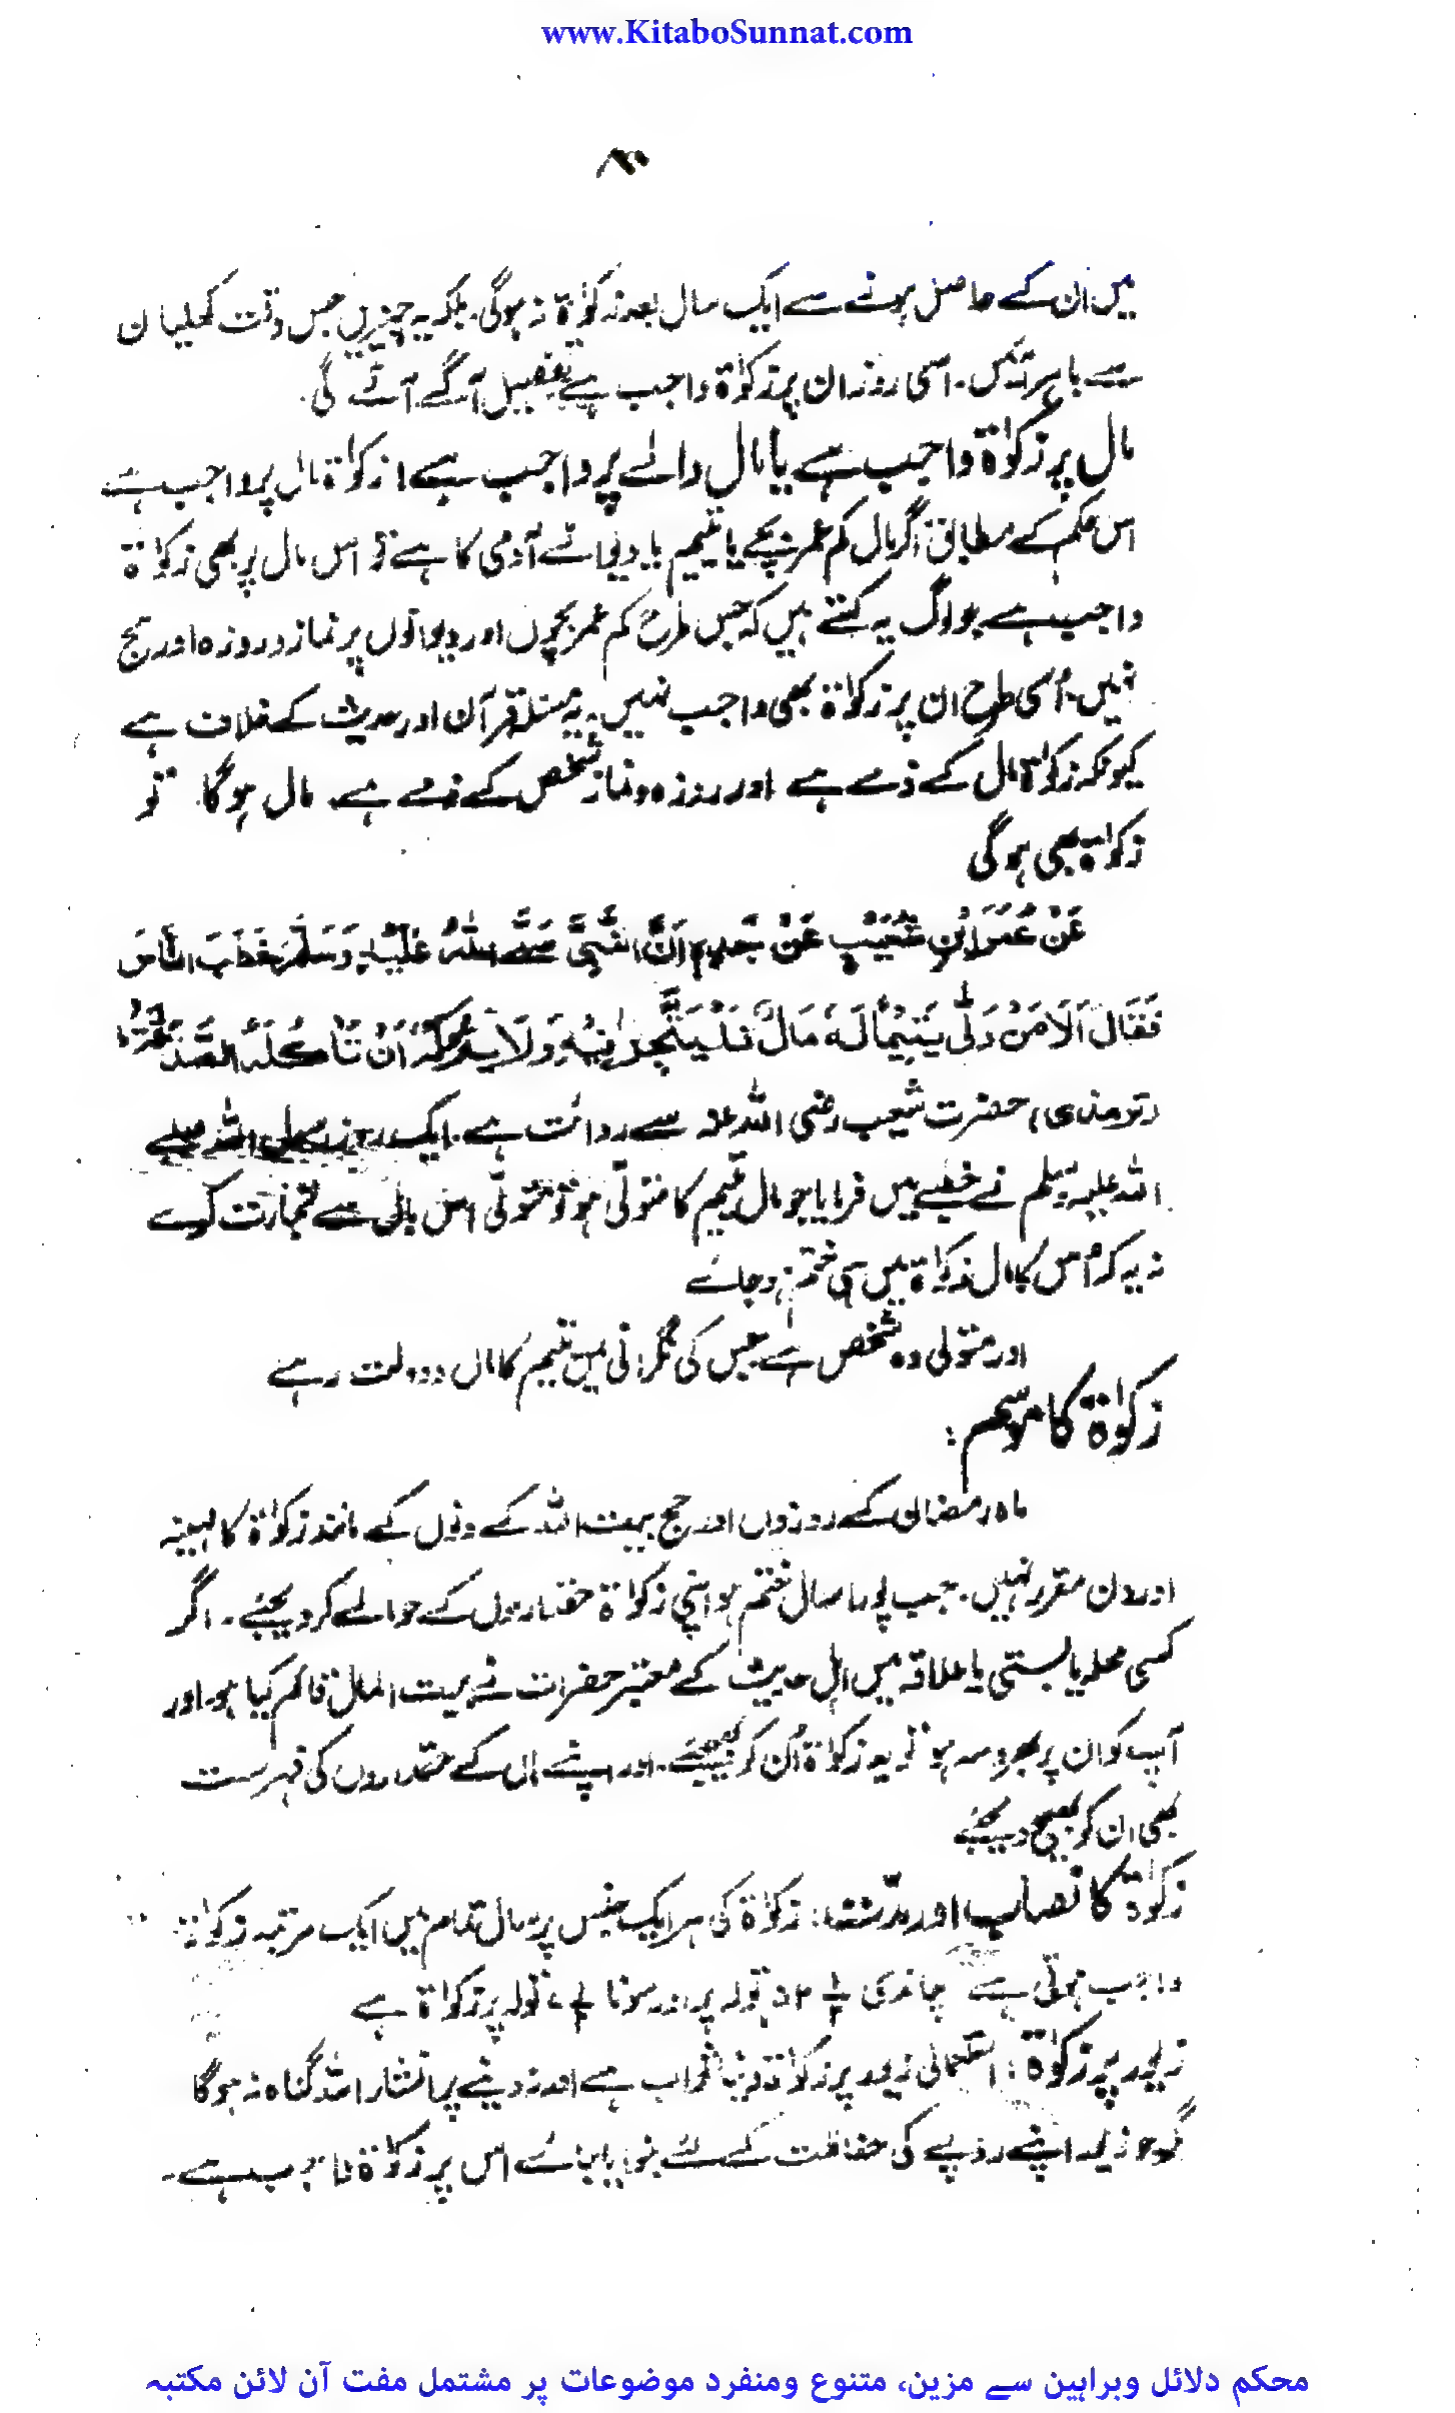 www.KitaboSunnat.com
میں ان کے حاصل ہونے سے ایک سال بعد زکوٰۃ نہ ہوگی۔ بلکہ یہ چیزیں جس وقت کھلیان
سے باہر آئیں۔ اسی روز ان پر زکوٰۃ واجب ہے تفصیل آگے آئے گی۔
مال پر زکوٰۃ واجب ہے یا مال والے پر واجب ہے؛ زکوٰۃ مال پر واجب ہے
اس حکم کے مطابق اگر مال کم عمر بچے یا یتیم یا دیوانے آدمی کا ہے تو اس مال پر بھی زکوٰۃ
واجب ہے جو لوگ یہ کہتے ہیں کہ جس طرح کم عمر بچوں اور دیوانوں پر نماز و روزہ اور حج
نہیں۔ اُسی طرح ان پر زکوٰۃ بھی واجب نہیں۔ یہ مسئلہ قرآن اور حدیث کے خلاف ہے
کیونکہ زکوٰۃ مال کے ذمے ہے اور روزہ و نماز شخص کے ذمے ہے۔ مال ہوگا۔ تو
زکوٰۃ بھی ہوگی
عَنْ عُمَرَ ابْنِ شُعَیْبٍ عَنْ جَدِّہٖ اَنَّ النَّبِیَّ صَلَّے اللہُ عَلَیْہِ وَسَلَّمَ خَطَبَ النَّاسَ
فَقَالَ اَلَا مَنْ وَلِّیَ یَتِیْمًا لَہٗ مَالٌ فَلْیَتَّجِرْ فِیْہِ وَلَا یَتْرُکْہُ اَنْ تَاْکُلَہُ الصَّدَقَۃُ
(ترمذی) حضرت شعیب رضی اللہ عنہ سے روائت ہے۔ ایک روز رسول اللہ صلے
اللہ علیہ وسلم نے خطبے میں فرمایا جو مال یتیم کا متولّی ہو تو متولّی اس مال سے تجارت کرے
نہ یہ کہ اُس کا مال زکوٰۃ میں ہی ختم ہو جائے
اور متولی وہ شخص ہے جس کی نگرانی میں یتیم کا مال و دولت رہے
زکوٰۃ کا موسم:
ماہ رمضان کے روزوں اور حج بیت اللہ کے دنوں کے مانند زکوٰۃ کا مہینہ
اور دن مقرر نہیں۔ جب پورا سال ختم ہو اپنی زکوٰۃ حقداروں کے حوالے کر دیجئے۔ اگر
کسی محلہ یا بستی یا علاقہ میں اہل حدیث کے معتبر حضرات نے بیت المال قائم کیا ہو۔ اور
آپ کو ان پر بھروسہ ہو تو یہ زکوٰۃ اُن کو بھیجئے۔ اور اپنے ہاں کے حقداروں کی فہرست
بھی ان کو بھیج دیجئے
زکوٰۃ کا نصاب اور مدّت: زکوٰۃ کی ہر ایک جنس پر سال تمام میں ایک مرتبہ زکوٰۃ
واجب ہوتی ہے چاندی ½ ۵۲ تولہ پر اور سونا ½ ۷ تولہ پر زکوٰۃ ہے
زیور پر زکوٰۃ: استعمالی زیور پر زکوٰۃ دینا ثواب ہے اور نہ دینے پر انشاء اللہ گناہ نہ ہوگا
گو جو زیور اپنے روپے کی حفاظت کے لئے بنوایا جائے اس پر زکوٰۃ واجب ہے۔
محکم دلائل وبراہین سے مزین، متنوع ومنفرد موضوعات پر مشتمل مفت آن لائن مکتبہ